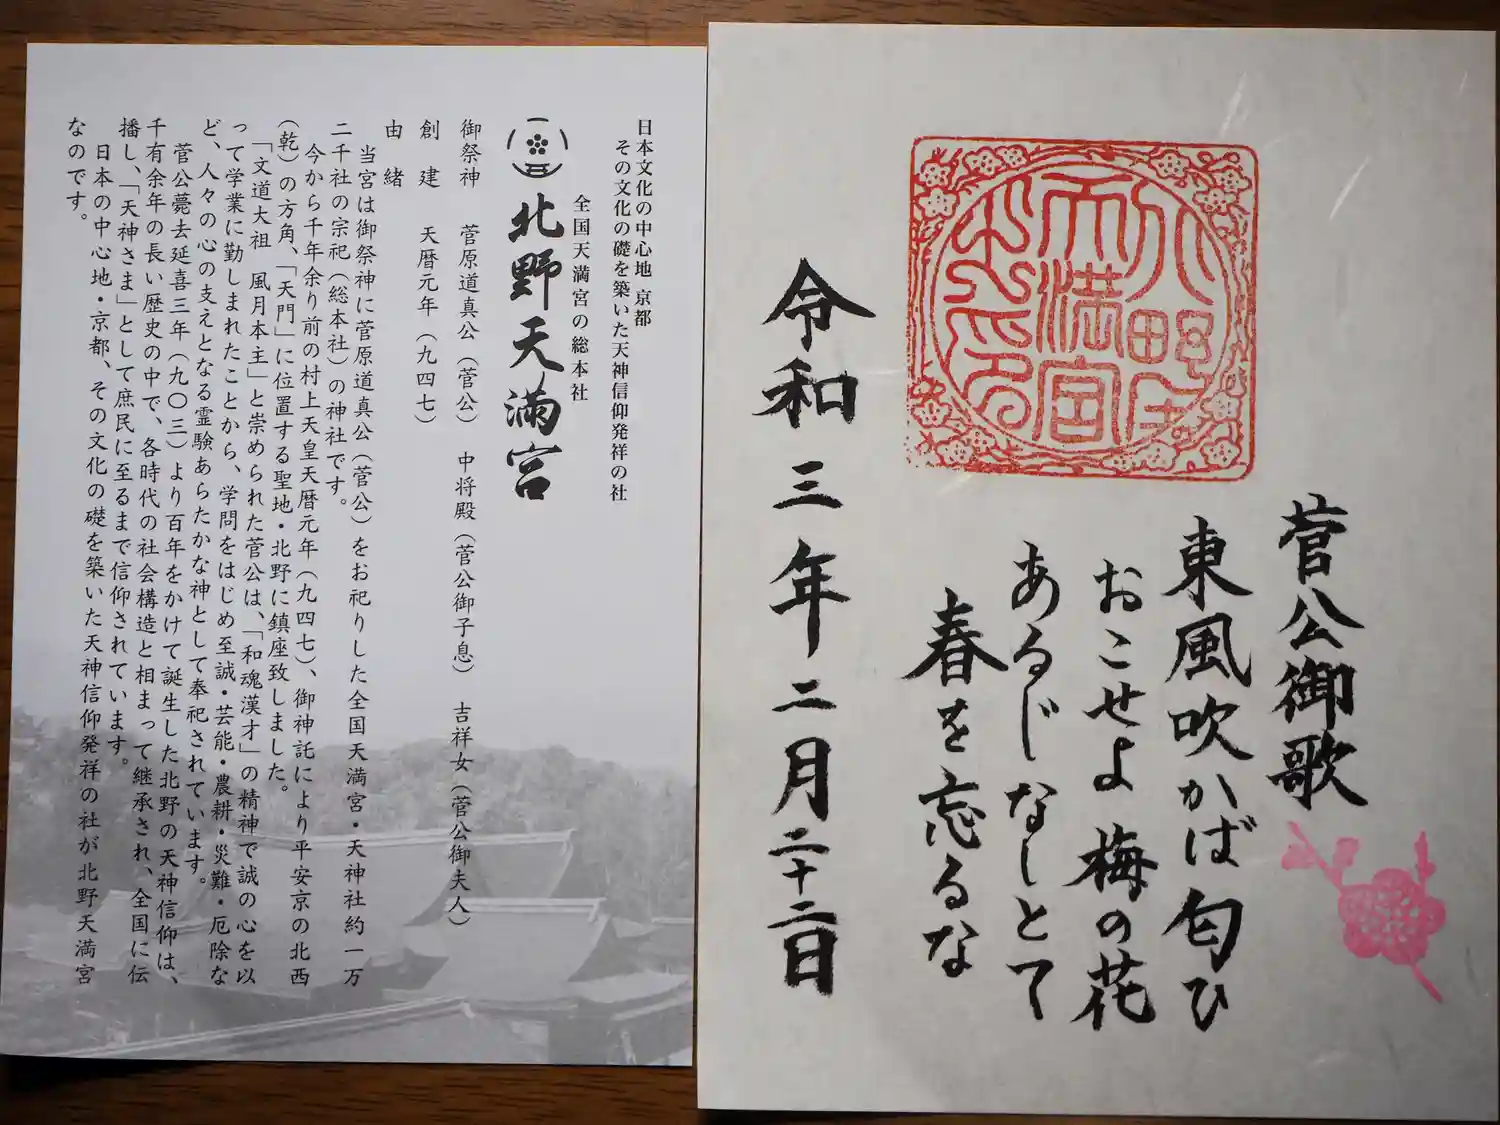 日本文化の中心地 京都
その文化の礎を築いた天神信仰発祥の社
全国天満宮の総本社
北野天満宮
御祭神 菅原道真公（菅公） 中将殿（菅公御子息） 吉祥女（菅公御夫人）
創建 天暦元年（九四七）
由緒
当宮は御祭神に菅原道真公（菅公）をお祀りした全国天満宮・天神社約一万
二千社の宗祀（総本社）の神社です。
今から千年余り前の村上天皇天暦元年（九四七）、御神託により平安京の北西
（乾）の方角、「天門」に位置する聖地・北野に鎮座致しました。
「文道大祖 風月本主」と崇められた菅公は、「和魂漢才」の精神で誠の心を以
って学業に勤しまれたことから、学問をはじめ至誠・芸能・農耕・災難・厄除な
ど、人々の心の支えとなる霊験あらたかな神として奉祀されています。
菅公薨去延喜三年（九〇三）より百年をかけて誕生した北野の天神信仰は、
千有余年の長い歴史の中で、各時代の社会構造と相まって継承され、全国に伝
播し、「天神さま」として庶民に至るまで信仰されています。
日本の中心地・京都、その文化の礎を築いた天神信仰発祥の社が北野天満宮
なのです。
菅公御歌
東風吹かば匂ひ
おこせよ 梅の花
あるじなしとて
春を忘るな
北野天満宮
令和三年二月二十二日